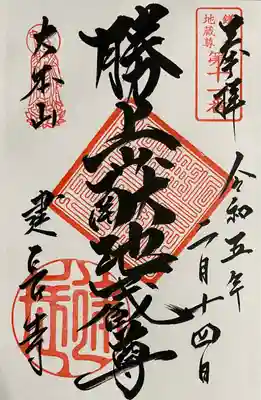 奉拝
地蔵尊
第十一番
令和五年二月十四日
勝上嶽地蔵尊
大本山
建長寺